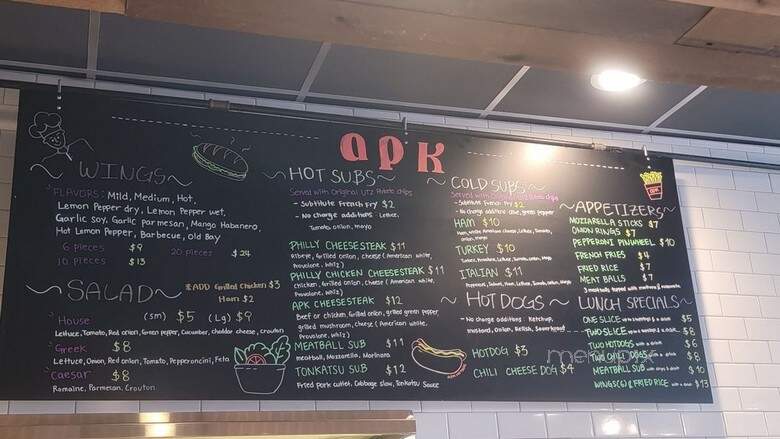 apk
WINGS
FLAVORS: Mild, Medium, Hot,
Lemon Pepper dry, Lemon Pepper wet,
Garlic soy, Garlic parmesan, Mango Habanero,
Hot Lemon Pepper, Barbecue, Old Bay
6 pieces $9 20 pieces $24
10 pieces $13
SALAD
*ADD Grilled Chicken $3
Ham $2
House (sm) $5 (Lg) $9
Lettuce, Tomato, Red onion, Green pepper, Cucumber, cheddar cheese, crouton
Greek $8
Lettuce, Onion, Red onion, Tomato, Pepperoncini, Feta
Caesar $8
Romaine, Parmesan, Crouton
HOT SUBS
Served with Original UTZ Potato chips
- Subtitute French Fry $2
- No charge additions: Lettuce,
Tomato, onion, mayo
PHILLY CHEESESTEAK $11
Ribeye, Grilled onion, cheese (American white,
Provolone, Whiz)
PHILLY CHICKEN CHEESESTEAK $11
chicken, Grilled onion, cheese (American white,
Provolone, Whiz)
APK CHEESESTEAK $12
Beef or chicken, Grilled onion, grilled green pepper,
grilled mushroom, cheese (American white,
Provolone, Whiz)
MEATBALL SUB $11
meatball, Mozzarella, Marinara
TONKATSU SUB $12
Fried pork cutlet, Cabbage slaw, Tonkatsu Sauce
COLD SUBS
Served with Original UTZ Potato chips
- Subtitute French Fry $2
- No charge additions: olive, green pepper
HAM $10
Ham, white American cheese, Lettuce, Tomato,
onion, mayo
TURKEY $10
Turkey, Provolone, Lettuce, Tomato, onion, mayo
ITALIAN $11
HOT DOGS
- No charge additions: Ketchup,
mustard, Onion, Relish, Sauerkraut
HOTDOG $3
CHILI CHEESE DOG $4
APPETIZERS
MOZZARELLA STICKS $7
ONION RINGS $7
PEPPERONI PINWHEEL $10
FRENCH FRIES $4
FRIED RICE $7
MEAT BALLS $7
LUNCH SPECIALS
ONE SLICE $5
TWO SLICE $8
TWO HOTDOGS $6
$8
MEATBALL SUB $10
WINGS(6) & FRIED RICE $13
menupix